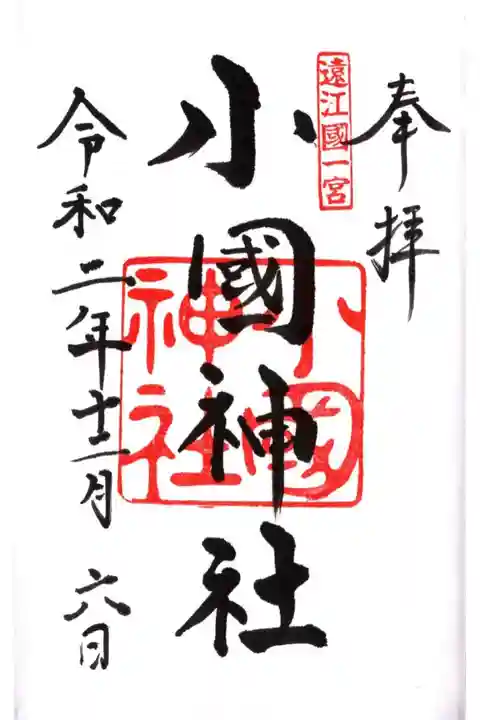 奉拝
遠江國一宮
小國神社
小國神社
令和二年十二月六日